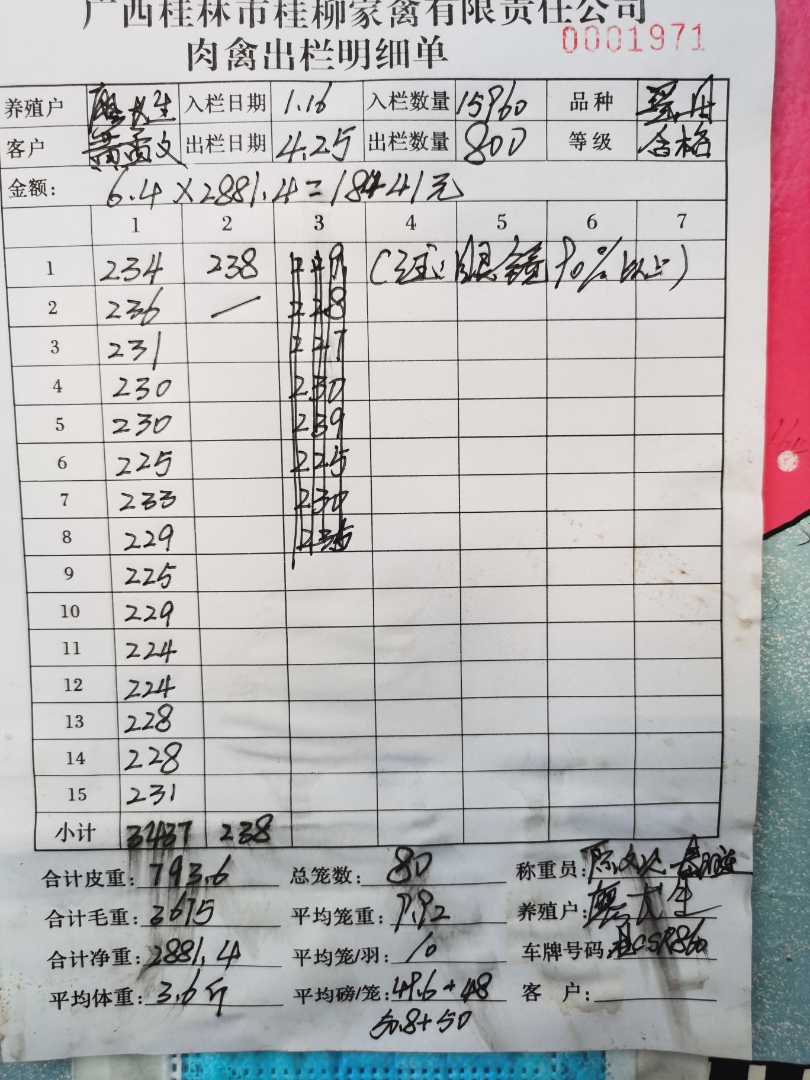 广西桂林市桂柳家禽有限责任公司
肉禽出栏明细单 0001971
养殖户 入栏日期 1.16 入栏数量 15960 品种
客户 黄尚文 出栏日期 4.25 出栏数量 800 等级 合格
金额: 6.4×2881.4=18441元
1 2 3 4 5 6 7
1 234 238 229 ( 眼镜90%以上)
2 236 — 228
3 231 227
4 230 230
5 230 239
6 225 225
7 233 230
8 229 235
9 225
10 229
11 224
12 224
13 228
14 228
15 231
小计 3437 238
合计皮重: 793.6 总笼数: 80 称重员:
合计毛重: 3675 平均笼重: 9.92 养殖户:
合计净重: 2881.4 平均笼/羽: 10 车牌号码:
平均体重: 3.6斤 平均磅/笼: 49.6+48 客 户:
50.8+50